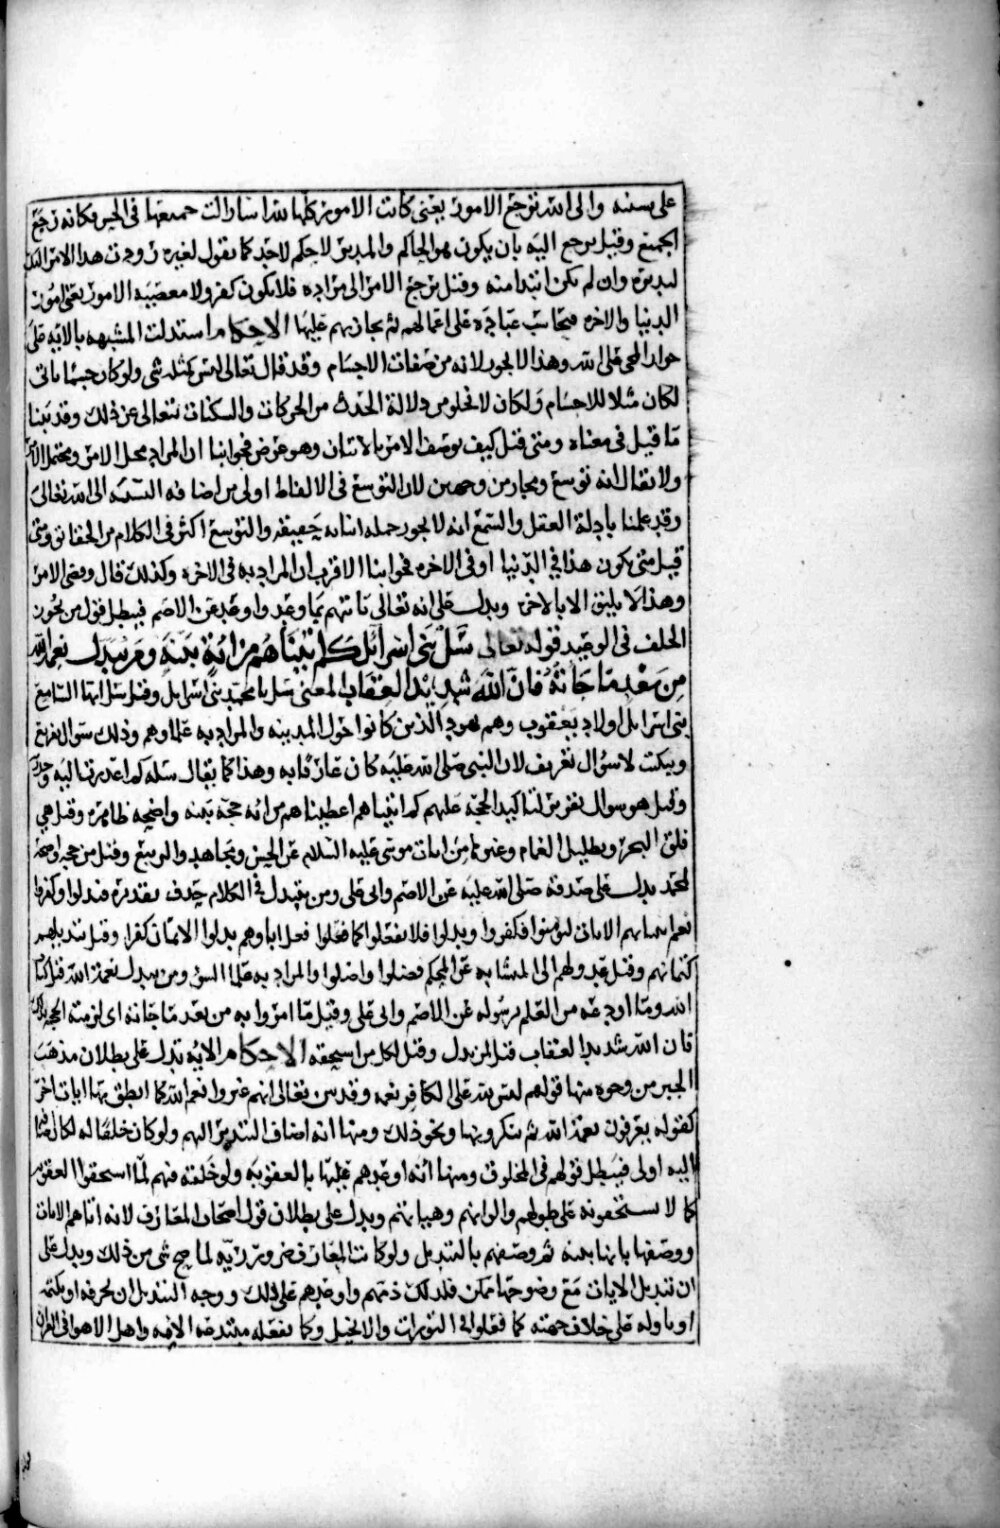 على سننه والى الله ترجع الامور يعني كانت الامور كلها لله ابتدا زالت جميعها في الحين فكانه رجع
الجميع وقيل يرجع اليه بان يكون هو الحاكم والمدبر لا حكم لاحد كما تقول لغيره رددت هذا الامر اليك
لتدبره وان لم يكن ابتدا منه وقيل ترجع الامر الى مراده فلا يكون كفر ولا معصية الامور يعني امور
الدنيا والاخره فيحاسب عباده على اعمالهم ثم يجازيهم عليها الاحكام استدلت المشبهه بالايه على
جواز المجي على الله وهذا لا يجوز لانه من صفات الاجسام وقد قال تعالى ليس كمثله شي ولو كان جسما ياتي
لكان مثلا للاجسام ولكان لا يخلو من دلالة الحدث من الحركات والسكنات تتعالى عن ذلك وقد بينا
ما قيل في معناه ومتى قيل كيف يوصف الامر بالاتيان وهو عرض فجوابنا ان المراد محل الامر ويحتمل الامر
ولا يقال انه توسع ومجاز من وجهين لان التوسع في الالفاظ اولى من اضافه الشبه الى الله تعالى
وقد علمنا بادلة العقل والسمع انه لا يجوز حمله اتيانه حقيقه والتوسع اكثر في الكلام من الحقائق ومتى
قيل متى يكون هذا في الدنيا او في الاخره فجوابنا الاقرب ان المراد به في الاخره وكذلك قال وقضي الامر
وهذا لا يليق الا بالاخره ويدل على انه تعالى ياتيهم بما وعد واوعد عن الاصم فيبطل قول من يجوز
الخلف في الوعيد قوله تعالى سل بني اسرائل كم اتيناهم من ايه بينه ومن يبدل نعمة الله
من بعد ما جاته فان الله شديد العقاب المعنى سل يا محمد بني اسرايل وقيل سل ايها السامع
بني اسرايل اولاد يعقوب وهم يهود الذين كانوا حول المدينه والمراد به علماوهم وذلك سوال تقريع
وتبكيت لا سوال تعريف لان النبي صلى الله عليه كان عارفا به وهذا كما يقال سله كم اعذرنا اليه
وقيل هو سوال تقرير لتاكيد الحجه عليهم كم اتيناهم اعطيناهم من ايه حجه بينه واضحه ظاهره وقيل هي
فلق البحر وتظليل الغمام وغيرها من ايات موسى عليه السلام عن الحسن ومجاهد والربيع وقيل من حجه واضحه
لمحمد تدل على صدقه صلى الله عليه عن الاصم وابي علي ومن يبدل في الكلام حذف تقديره فبدلوا وكفروا
نعم اتيناهم الايات ليومنوا فكفروا وبدلوا فلا تفعلوا كما فعلوا فعل اباوهم بدلوا الايمان كفرا وقيل تبديلهم
كتمانهم وقيل عدولهم الى المتشابه عن المحكم فضلوا واضلوا والمراد به علما السوء ومن يبدل نعمة الله قيل كتاب
الله وما اودعه من العلم برسوله عن الاصم وابي علي وقيل ما امروا به من بعد ما جاته اي لزمته الحجه
فان الله شديد العقاب قيل لمن بدل وقيل لكل من استحقه الاحكام الايه تدل على بطلان مذهب
الجبر من وجوه منها قولهم ليس لله على الكافر نعمه وقد بين تعالى انهم غيروا نعم الله كما انطق بها ايات اخر
كقوله يعرفون نعمة الله ثم ينكرونها ونحو ذلك ومنها انه اضاف التبديل اليهم ولو كان خلقا له لكان مضافا
اليه اولى فيبطل قولهم في المخلوق ومنها انه اوعدهم عليها بالعقوبه ولو خلقه فيهم لما استحقوا العقوبه
كما لا يستحقونه على طولهم والوانهم وهيياتهم ويدل على بطلان قول اصحاب المعارف لانه اتاهم الايات
ووصفها بانها بينه ثم وصفهم بالتبديل ولو كانت المعارف ضروريه لما صح شي من ذلك ويدل على
ان تبديل الايات مع وضوحها ممكن فلذلك ذمهم واوعدهم على ذلك ووجه التبديل ان يحرفه او يكتمه
او ياوله على خلاف جهته كما فعلوا في التورات والانجيل وكما يفعله مبتدعه الامه واهل الاهوا في القران